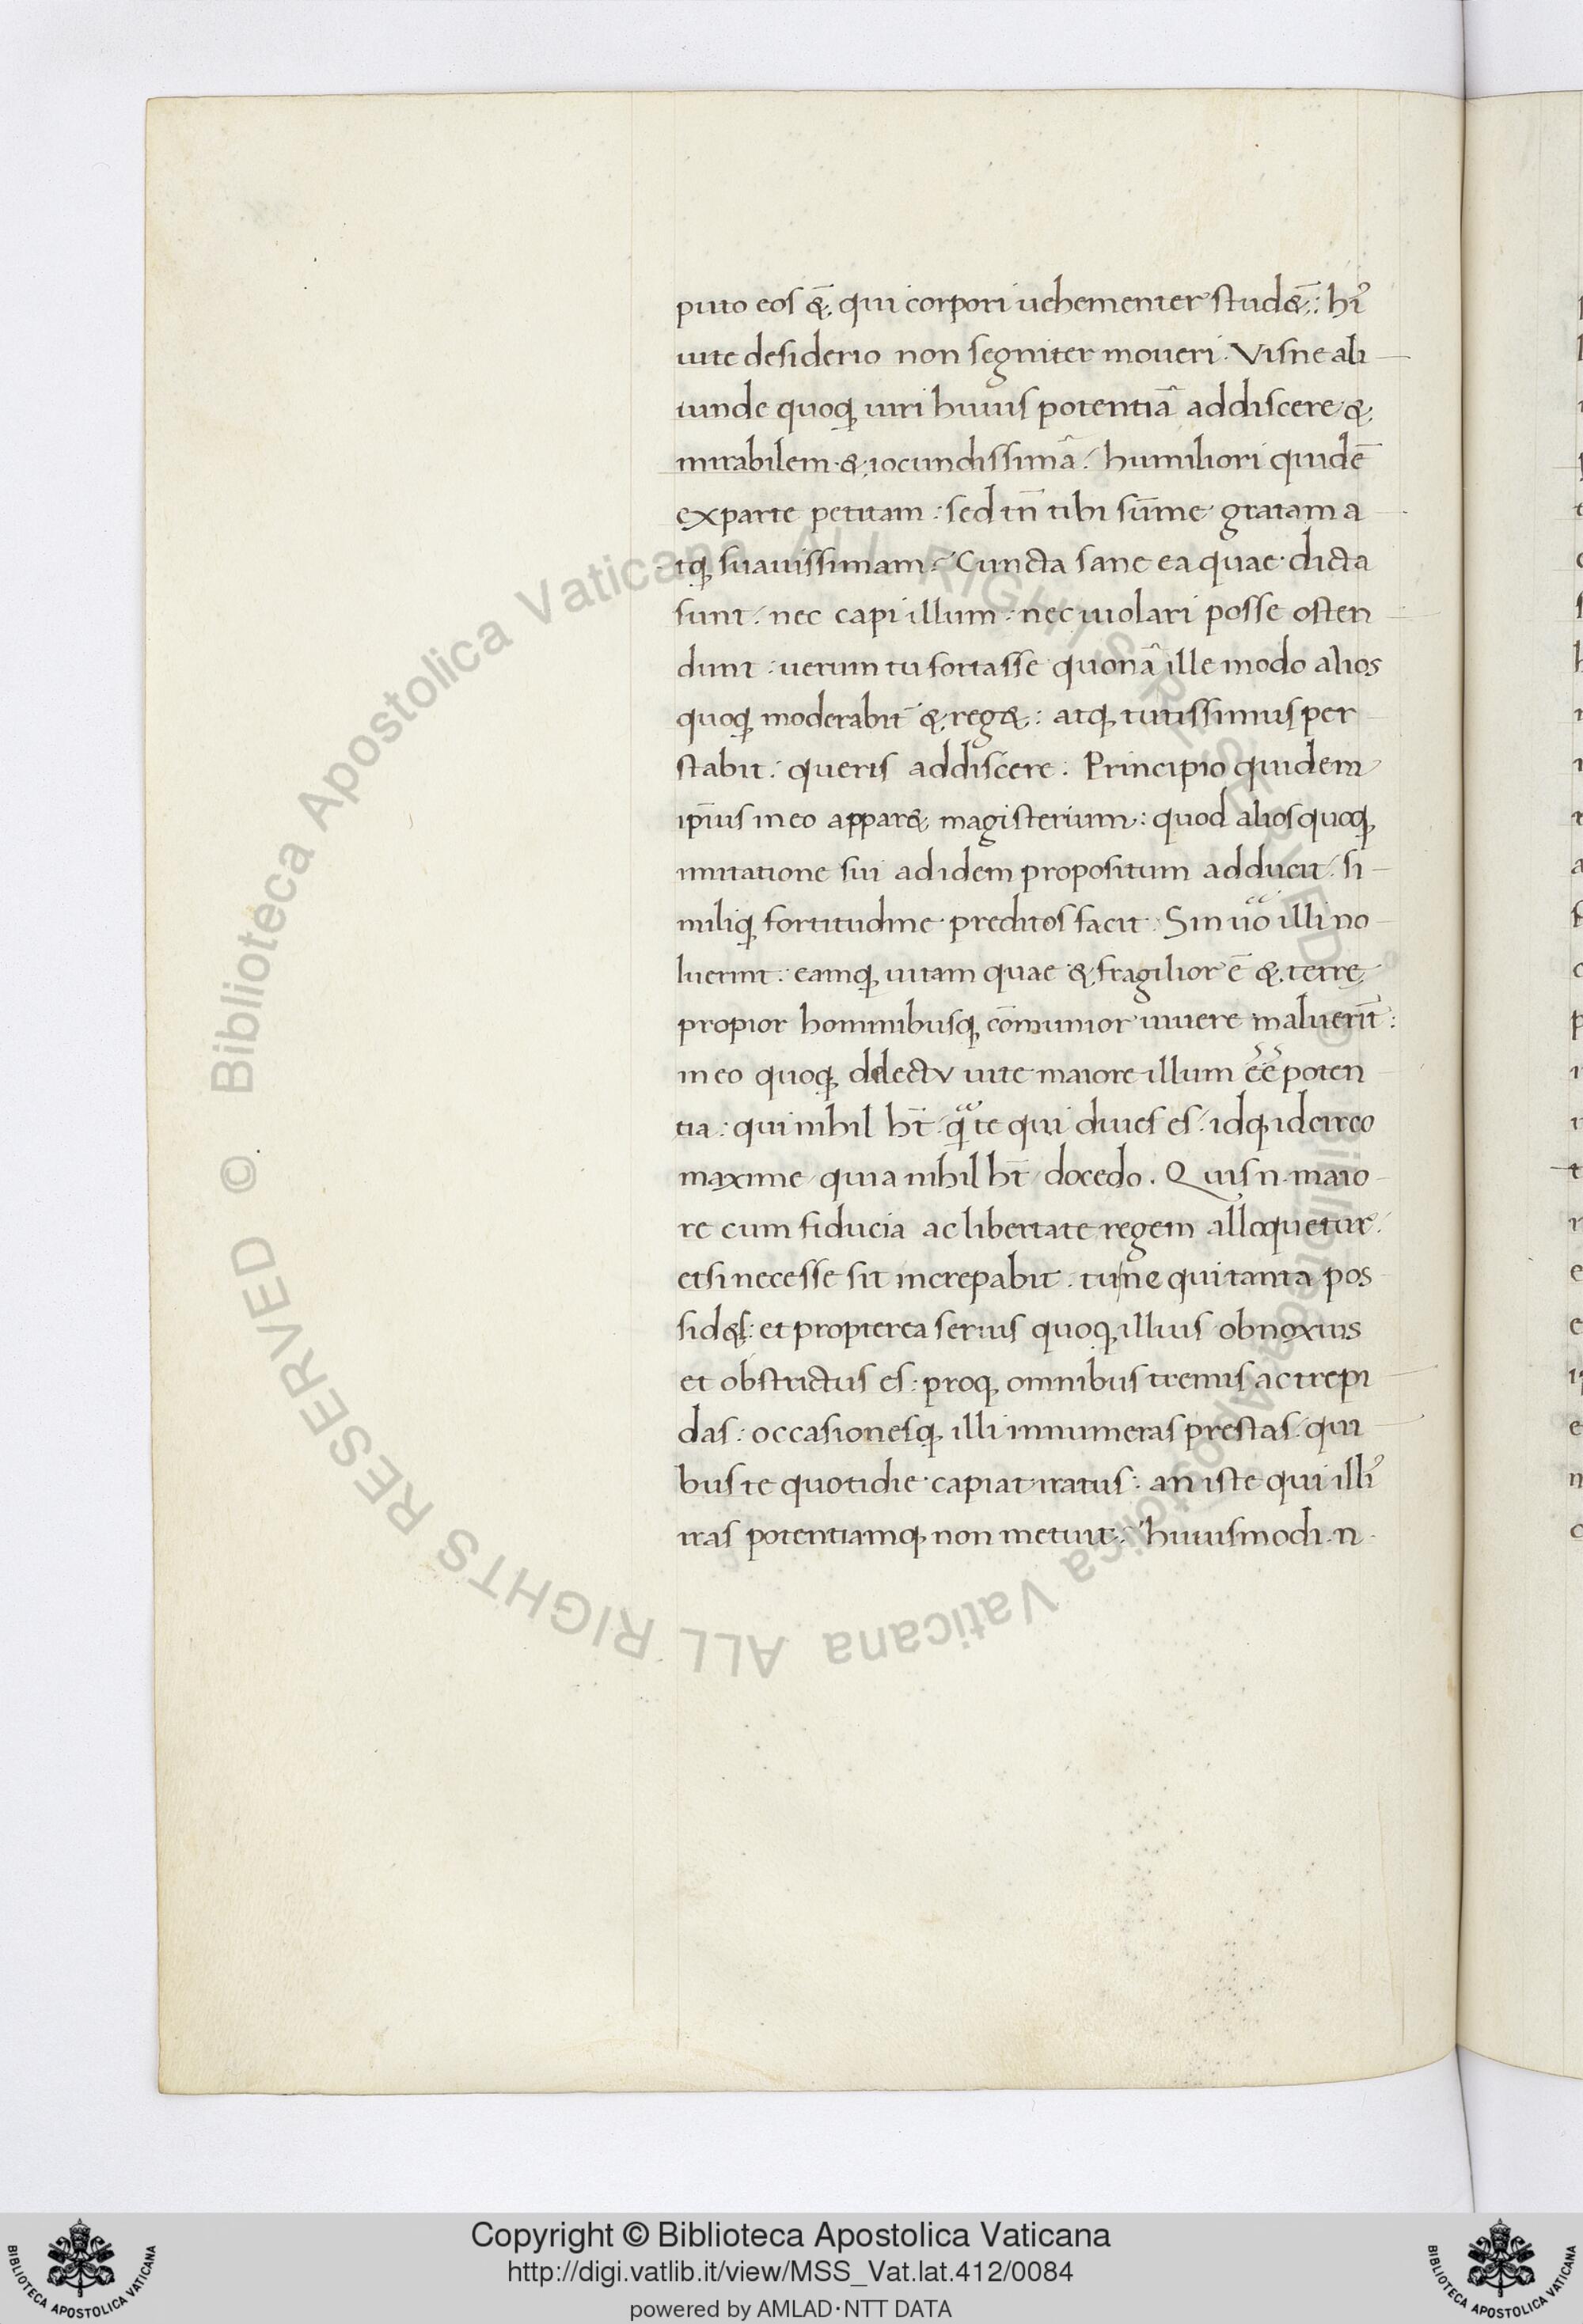 puto eos & ̄ qui corpori uehementer stud& ̄: hi᷒
uite desiderio non segniter moueri. Visne ali
unde quoq; uiri huius potentiā addiscere &
mirabilem & iocundissimā / humiliori quidē
ex parte petitam: sed tn̄ tibi sūme gratam a
tq; suauissimam? Cuncta sane ea quae dicta
sunt / nec capi illum: nec uiolari posse osten
dunt: uerum tu fortasse quonā ille modo alios
quoq; moderabit᷒ & reg&: atq; tutissimus per
stabit: queris addiscere. Principio quidem
ip̄ius in eo appar& magisterium: quod alios quoq;
imitatione sui ad idem propositum adducit / si
miliq; fortitudine preditos facit. Sin uō illi no
luerint: eamq; uitam quae & fragilior ē & terrę
propior hominibusq; cōmunior uiuere maluerīt:
in eo quoq; delectu uite maiore illum ēē poten
tia: qui nihil ht̄ q̄ te qui diues es / idq; idcirco
maxime quia nihil ht̄ docedo. Quis n. maio
re cum fiducia ac libertate regem alloquetur /
et si necesse sit increpabit. tu ne qui tanta pos
sid&s: et propterea seruus quoq; illius obnoxius
et obstrictus es: proq; omnibus tremis ac trepi
das: occasionesq; illi innumeras prestas / qui
bus te quotidie capiat iratus: an iste qui illi᷒
iras potentiamq; non metuit? huiusmodi n.
Copyright © Biblioteca Apostolica Vaticana
http://digi.vatlib.it/view/MSS_Vat.lat.412/0084
powered by AMLAD·NTT DATA
BIBLIOTECA APOSTOLICA VATICANA
BIBLIOTECA APOSTOLICA VATICANA
© Biblioteca Apostolica Vaticana ALL RIGHTS RESERVED © Biblioteca Apostolica Vaticana ALL RIGHTS RESERVED